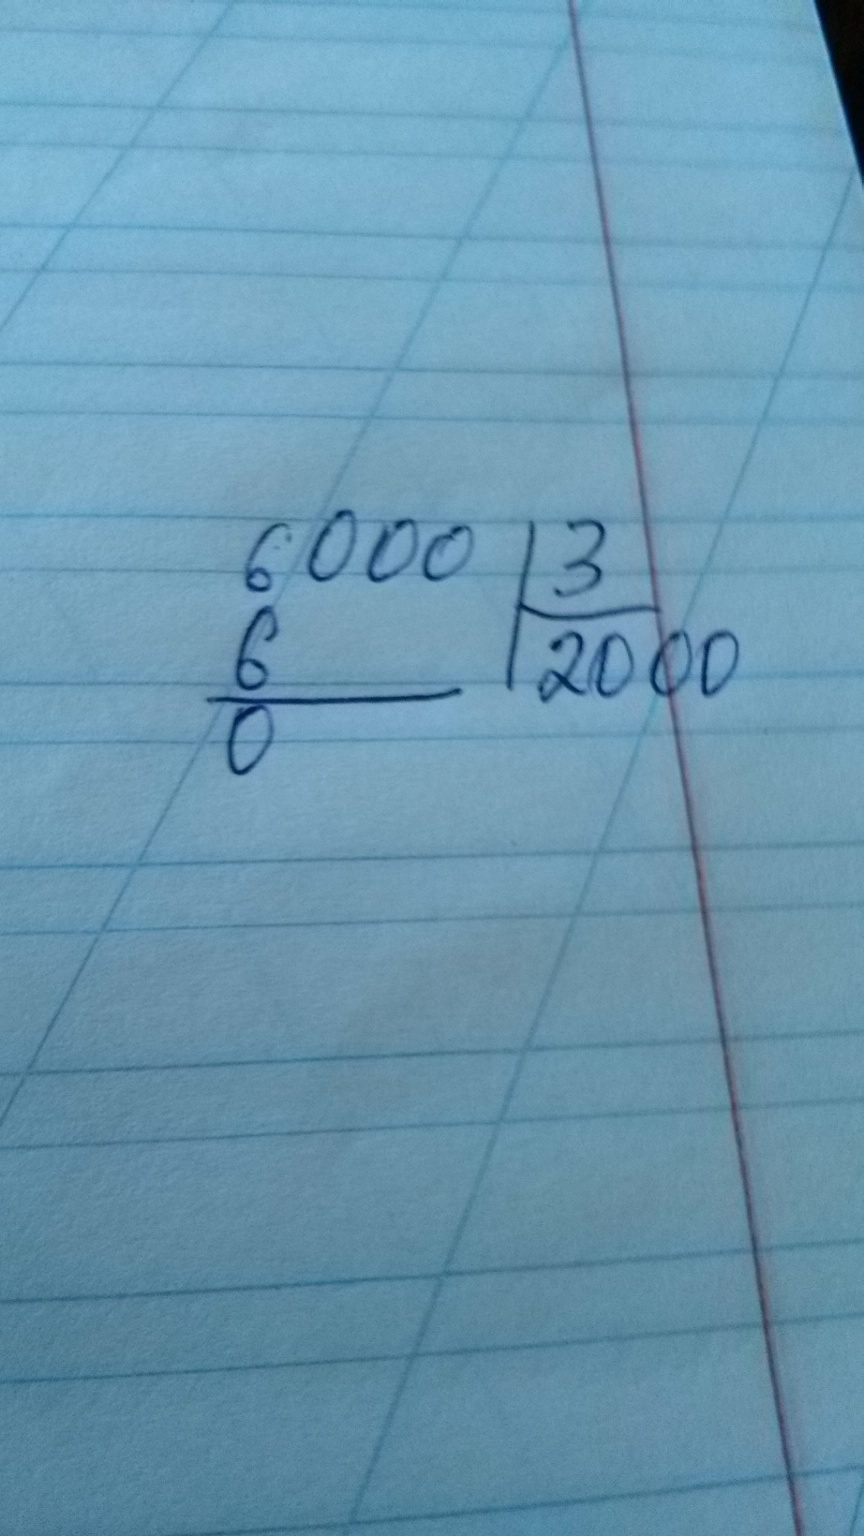 6000 3
6 2000
0